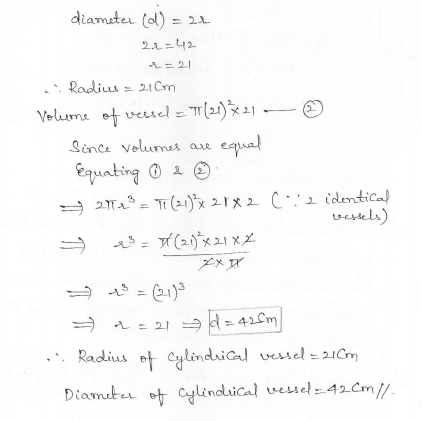 diameter (d) = 2r
2r = 42
r = 21
∴ Radius = 21 Cm
Volume of vessel = π(21)² × 21 — ②
Since volumes are equal
Equating ① & ②.
⇒ 2πr³ = π(21)² × 21 × 2 (∵ 2 identical vessels)
⇒ r³ = π(21)² × 21 × 2 / 2 × π
⇒ r³ = (21)³
⇒ r = 21 ⇒ d = 42Cm
∴ Radius of Cylindrical vessel = 21Cm
Diameter of Cylindrical vessel = 42Cm//.